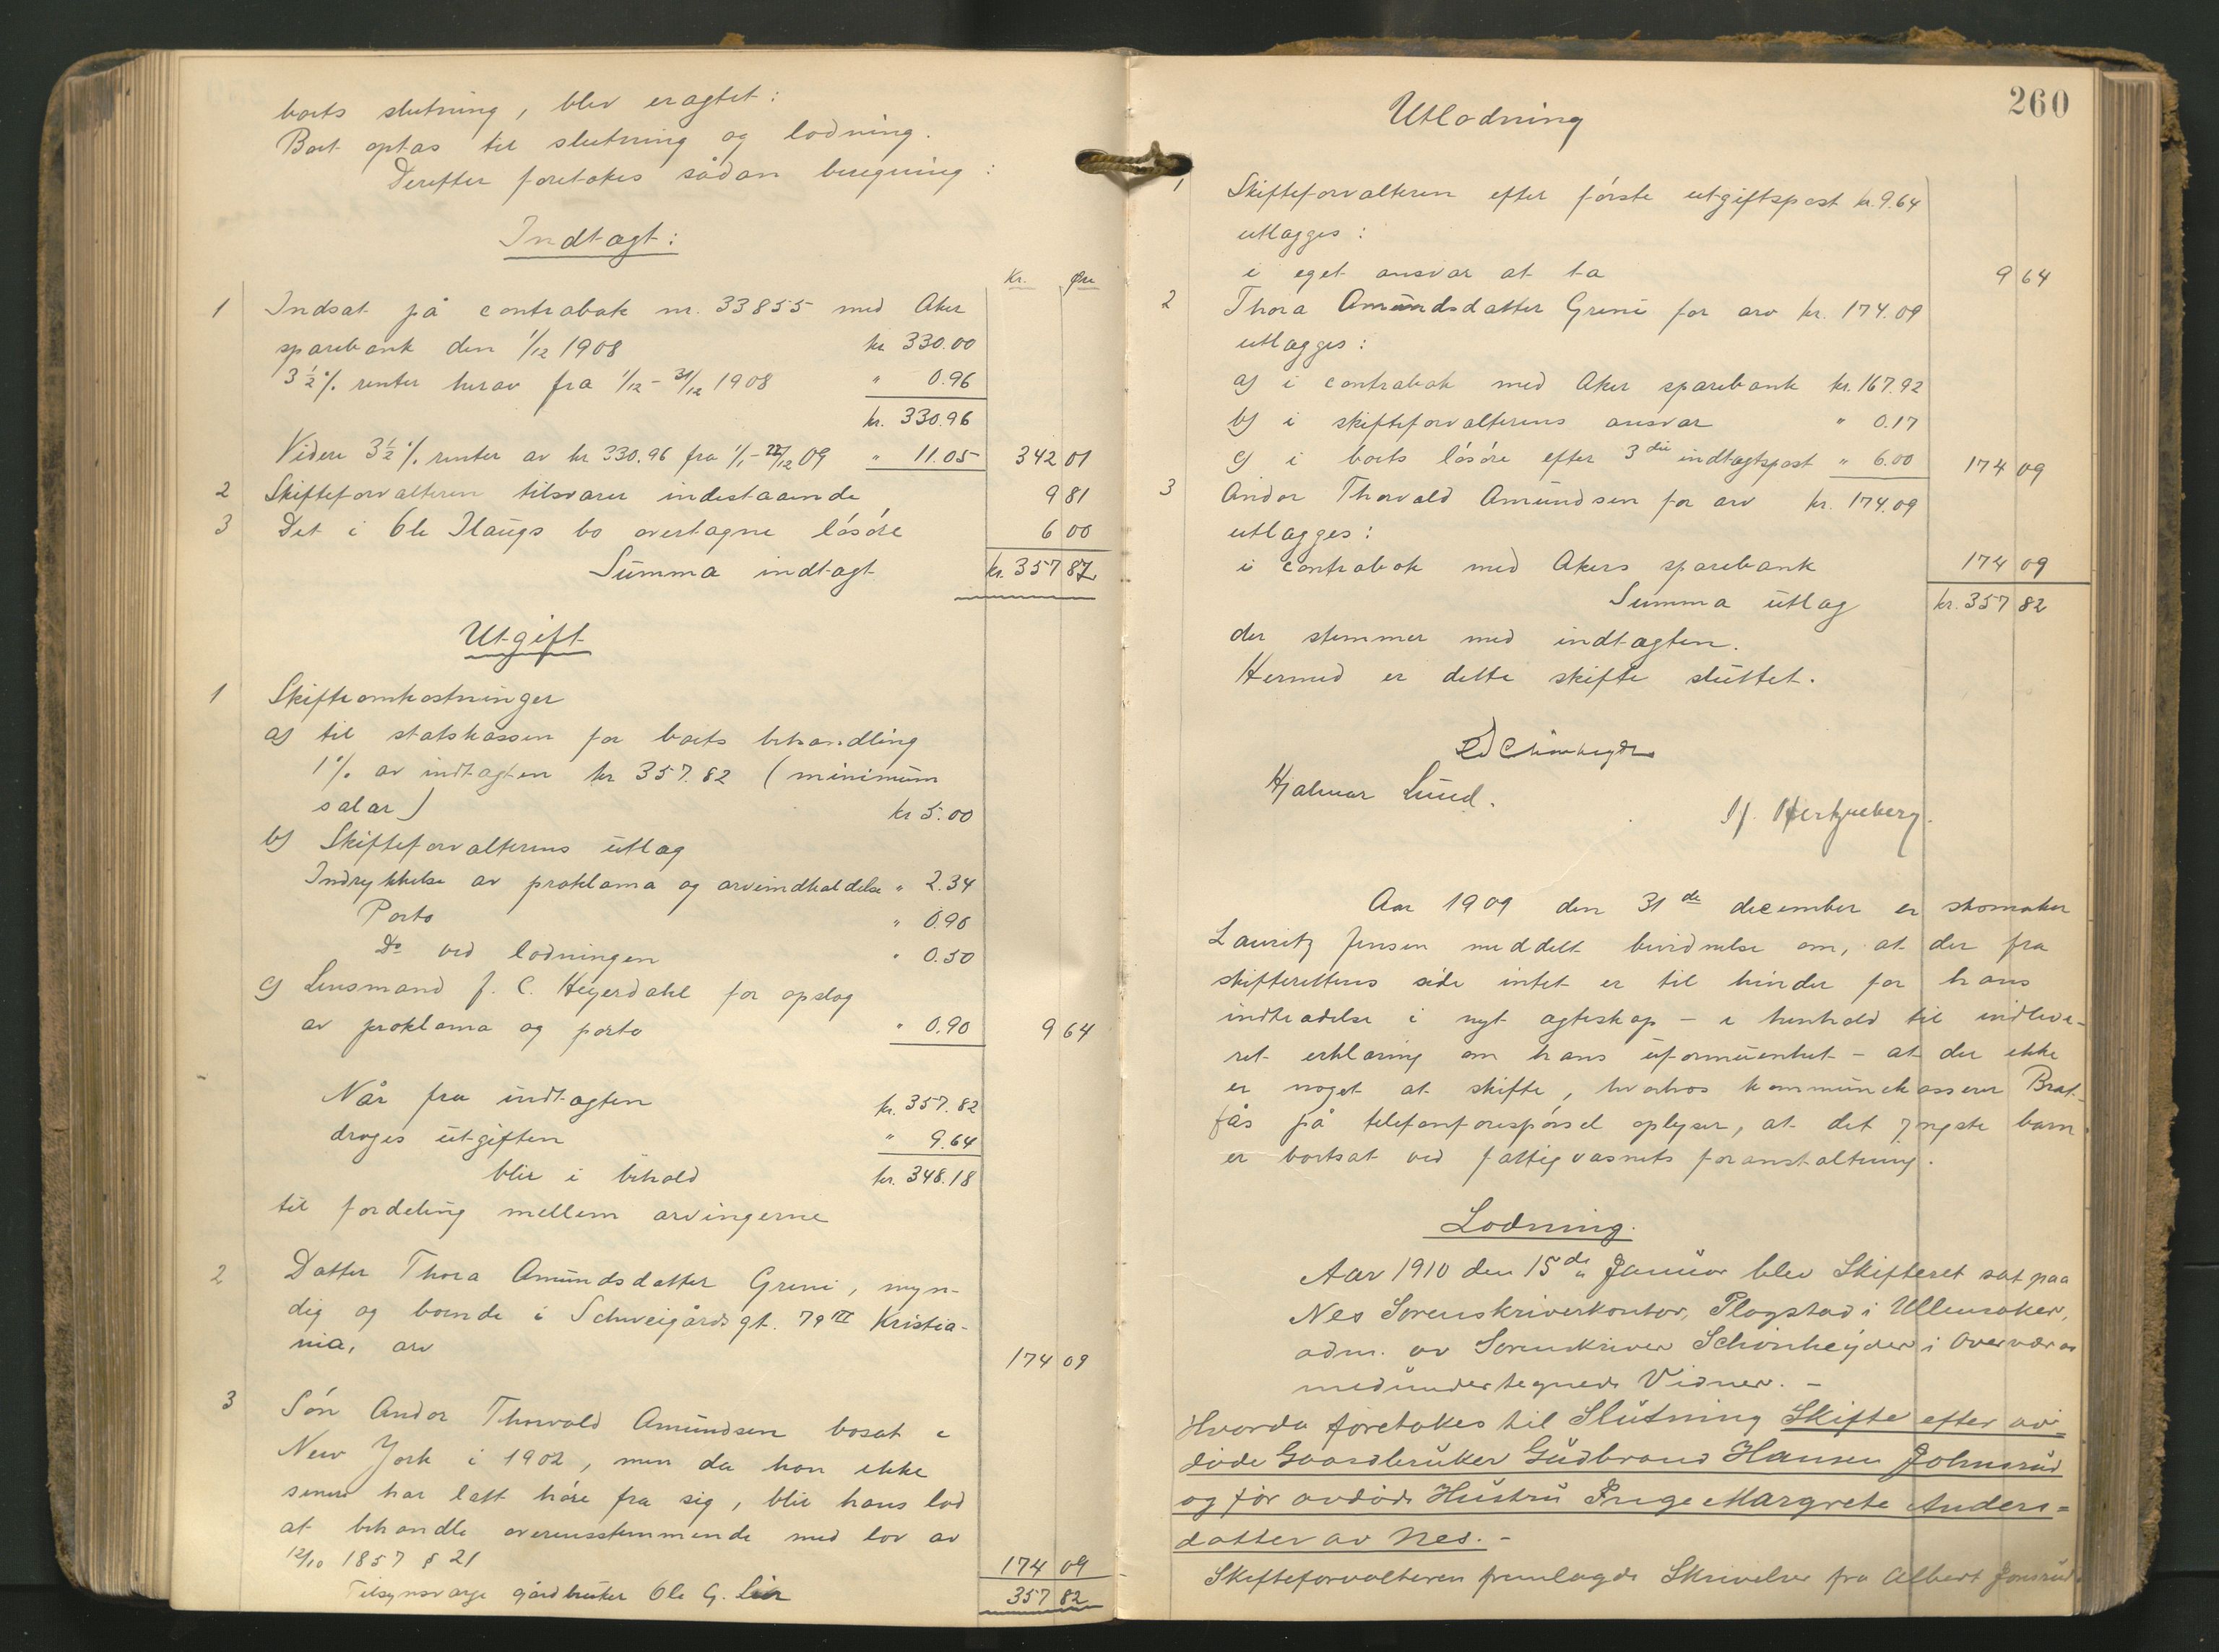 boets slutning, blev eragtet:
Boet optas til slutning og lodning.
Derefter foretokes sådan beregning:
Indtægt:
Kr. Øre
1 Indsat på contrabok nr. 33855 med Aker
sparebank den 1/12 1908 kr 330.00
3 1/2 % renter herav fra 1/12 - 31/12 1908 " 0.96
kr. 330.96
Videre 3 1/2 % renter av kr 330.96 fra 1/1 - 22/12 09 " 11.05 342 01
2 Skifteforvalteren tilsvarer indestaaende 9 81
3 Det i Ole Ilaugs bo overtagne løsøre 6 00
Summa indtægt kr. 357 82
Utgift
1 Skifteomkostninger
a) til statskassen for boets behandling
1 % av indtægten kr 357.82 (minimum
salær) kr 5.00
b) Skifteforvalterens utlæg
Indrykkelse av proklama og arveindkaldelse " 2.34
Porto " 0.90
Do ved lodningen " 0.50
c) Lensmand J. C. Heyerdahl for opslag
av proklama og porto " 0.90 9 64
Når fra indtægten kr. 357.82
drages utgiften " 9.64
blir i behold kr. 348.18
til fordeling mellem arvingerne
2 Datter Thora Amundsdatter Greni, myn-
dig og boende i Schweigårds gt. 79 III Kristia-
nia, arv 174 09
3 Søn Andor Thorvald Amundsen bosat i
New York i 1902, men da han ikke
senere har latt høre fra sig, blir hans lod
at behandle overensstemmende med lov av
12/10 1857 § 21 174 09
Tilsynsværge gårdbruker Ole G. Lier 357 82
260
Utlodning
1 Skifteforvalteren efter første utgiftspost kr. 9.64
utlægges:
i eget ansvar at ta 9 64
2 Thora Amundsdatter Greni for arv kr. 174.09
utlægges:
a) i contrabok med Aker sparebank kr. 167.92
b) i skifteforvalterens ansvar " 0.17
c) i boets løsøre efter 3die indtægtspost " 6.00 174 09
3 Andor Thorvald Amundsen for arv kr. 174.09
utlægges:
i contrabok med Akers sparebank 174 09
Summa utlæg kr. 357 82
der stemmer med indtægten.
Hermed er dette skifte sluttet.
Schønheyder
Hjalmar Lund. H. Hertzberg.
Aar 1909 den 31de december er skomaker
Lauritz Jensen meddelt bevidnelse om, at der fra
skifterettens side intet er til hinder for hans
indtrædelse i nyt ægteskap - i henhold til indleve-
ret erklæring om hans uformuenhet - at der ikke
er noget at skifte, hvorhos kommunekasserer Brat-
fås på telefonforespørsel oplyser, at det yngste barn
er bortsat ved fattigvæsnets foranstaltning.
Lodning.
Aar 1910 den 15de Januar blev Skifteret sat paa
Nes Sorenskriverkontor, Plogstad i Ullensaker,
adm. av Sorenskriver Schønheyder i Overvær av
medundertegnede Vidner. -
Hvorda foretokes til Slutning Skifte efter av=
døde Gaardbruker Gudbrand Hansen Johnsrud
og før avdøde Hustru Inge Margrete Anders=
datter av Nes. -
Skifteforvalteren fremlagde Skrivelser fra Albert Jonsrud